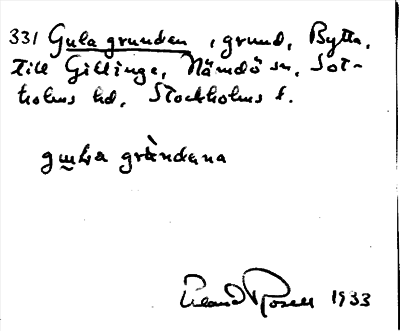 331 Gula grunden, grund, Bytta,
till Gillinge, Nämdö sn, Sot-
holms hd, Stockholms l.
gu̲la grùndana
Erland Rosell 1933